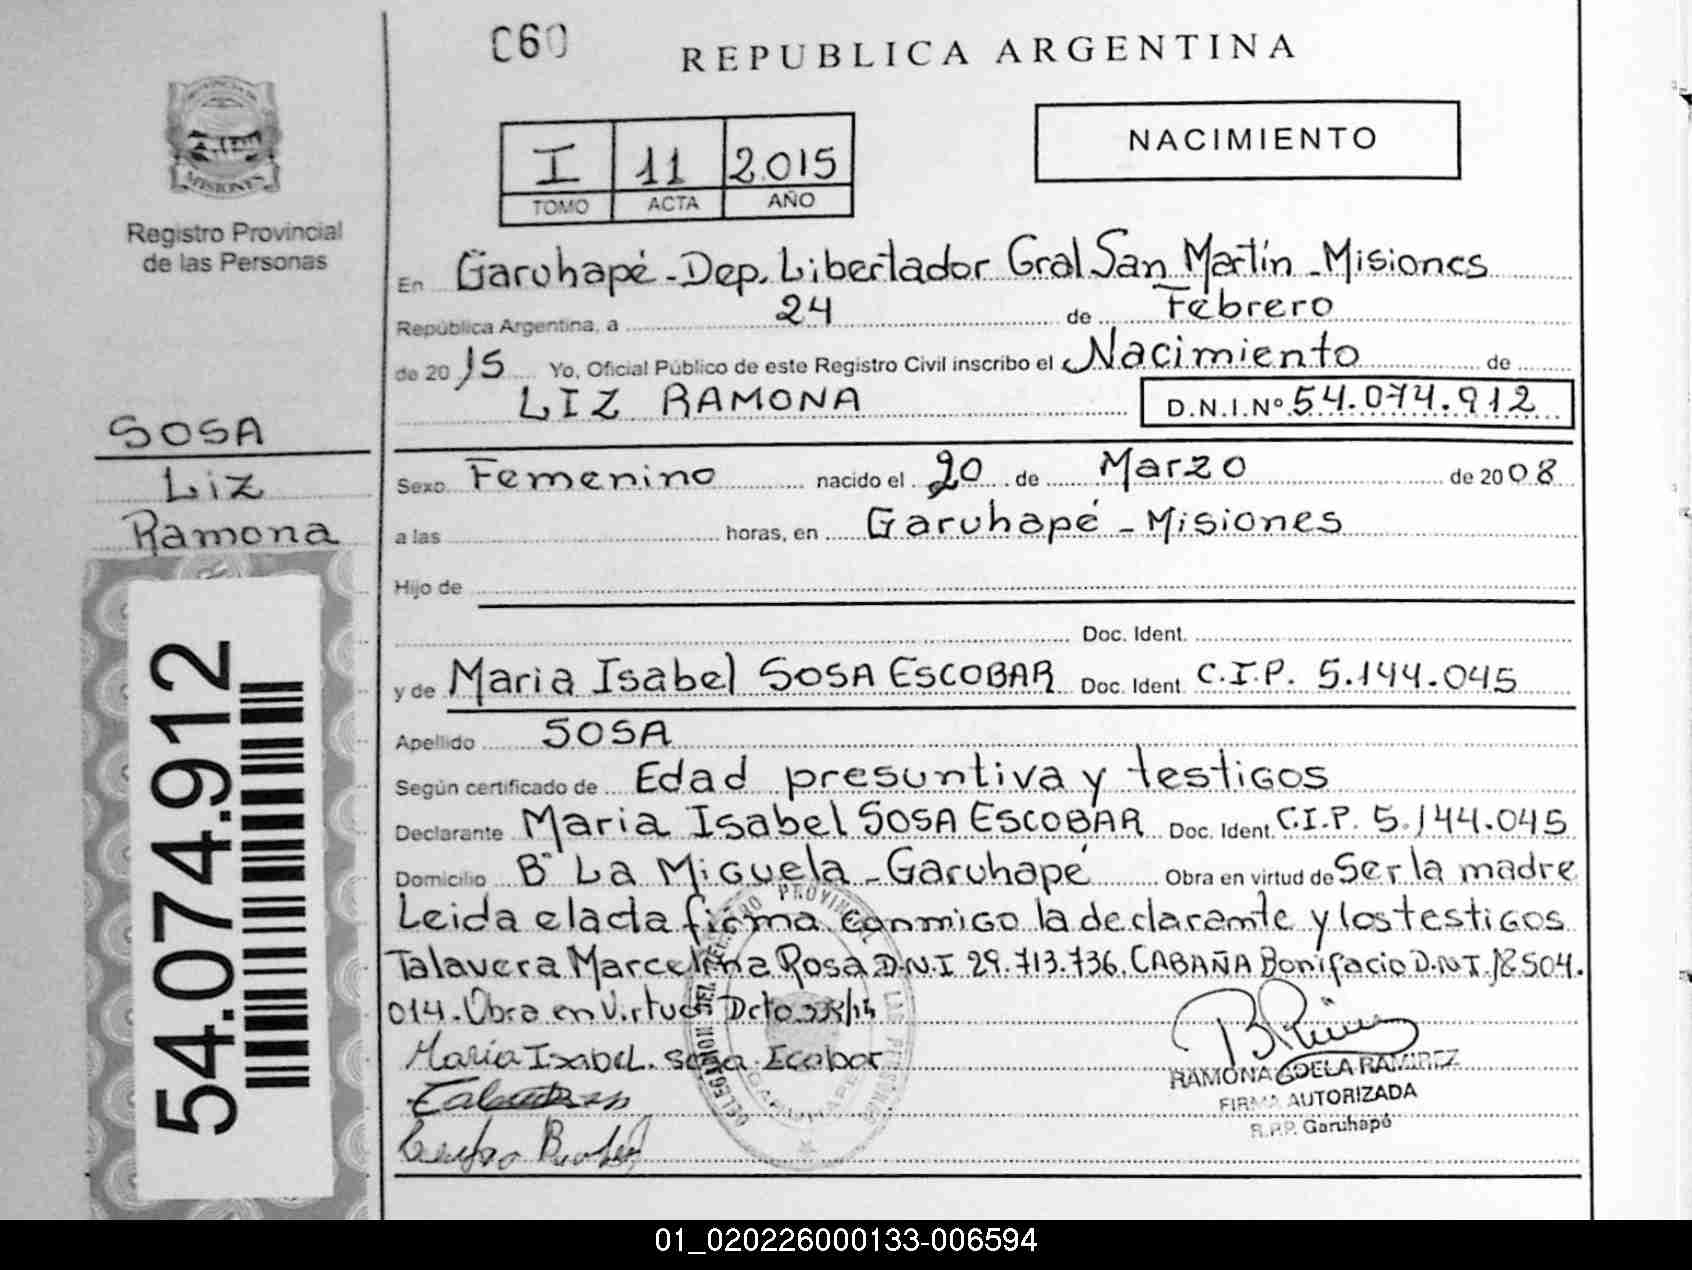 C60
REPUBLICA ARGENTINA
MISIONES
Registro Provincial
de las Personas
I 11 2015
TOMO ACTA AÑO
NACIMIENTO
En Garuhapé - Dep. Libertador Gral San Martín - Misiones
República Argentina, a 24 de Febrero
de 2015 Yo, Oficial Público de este Registro Civil inscribo el Nacimiento de
LIZ RAMONA D.N.I.Nº 54.074.912
SOSA
Liz
Ramona
54.074.912
Sexo Femenino nacido el 20 de Marzo de 2008
a las horas, en Garuhapé - Misiones
Hijo de
Doc. Ident.
y de Maria Isabel SOSA ESCOBAR Doc. Ident C.I.P. 5.144.045
Apellido SOSA
Según certificado de Edad presuntiva y testigos
Declarante Maria Isabel SOSA ESCOBAR Doc. Ident. C.I.P. 5.144.045
Domicilio Bº La Miguela - Garuhapé Obra en virtud de Ser la madre
Leida el acta firma conmigo la declarante y los testigos
Talavera Marcelina Rosa D.N.I 29.713.736. CABAÑA Bonifacio D.N.I. 18.504.
014. Obra en Virtud Dcto
Maria Isabel. Sosa Ecobar
RAMONA ADELA RAMIREZ
FIRMA AUTORIZADA
R.P.P. Garuhapé
01_020226000133-006594